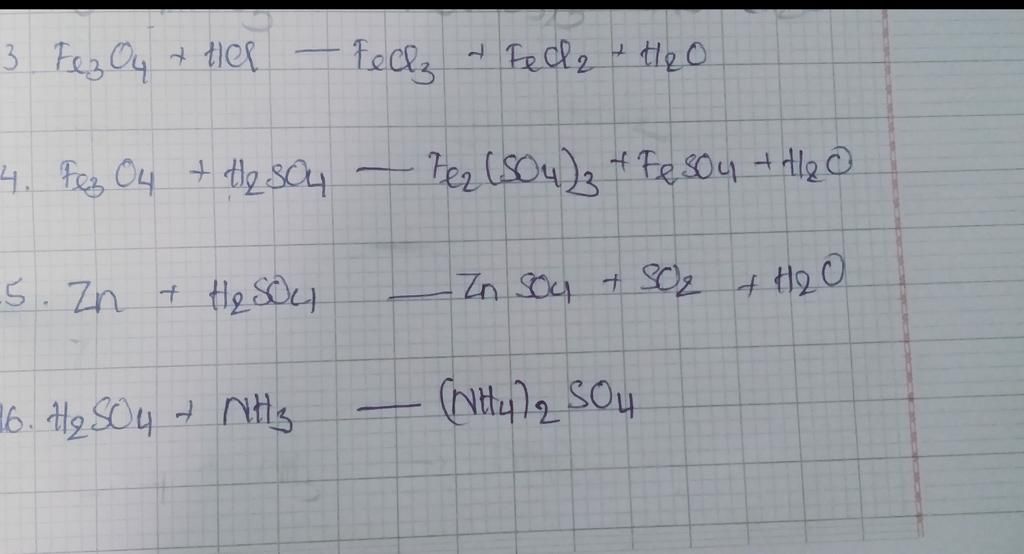 3 Fe₃O₄ + HCl — FeCl₃ + FeCl₂ + H₂O
4. Fe₃O₄ + H₂SO₄ — Fe₂(SO₄)₃ + FeSO₄ + H₂O
5. Zn + H₂SO₄ — ZnSO₄ + SO₂ + H₂O
16. H₂SO₄ + NH₃ — (NH₄)₂SO₄